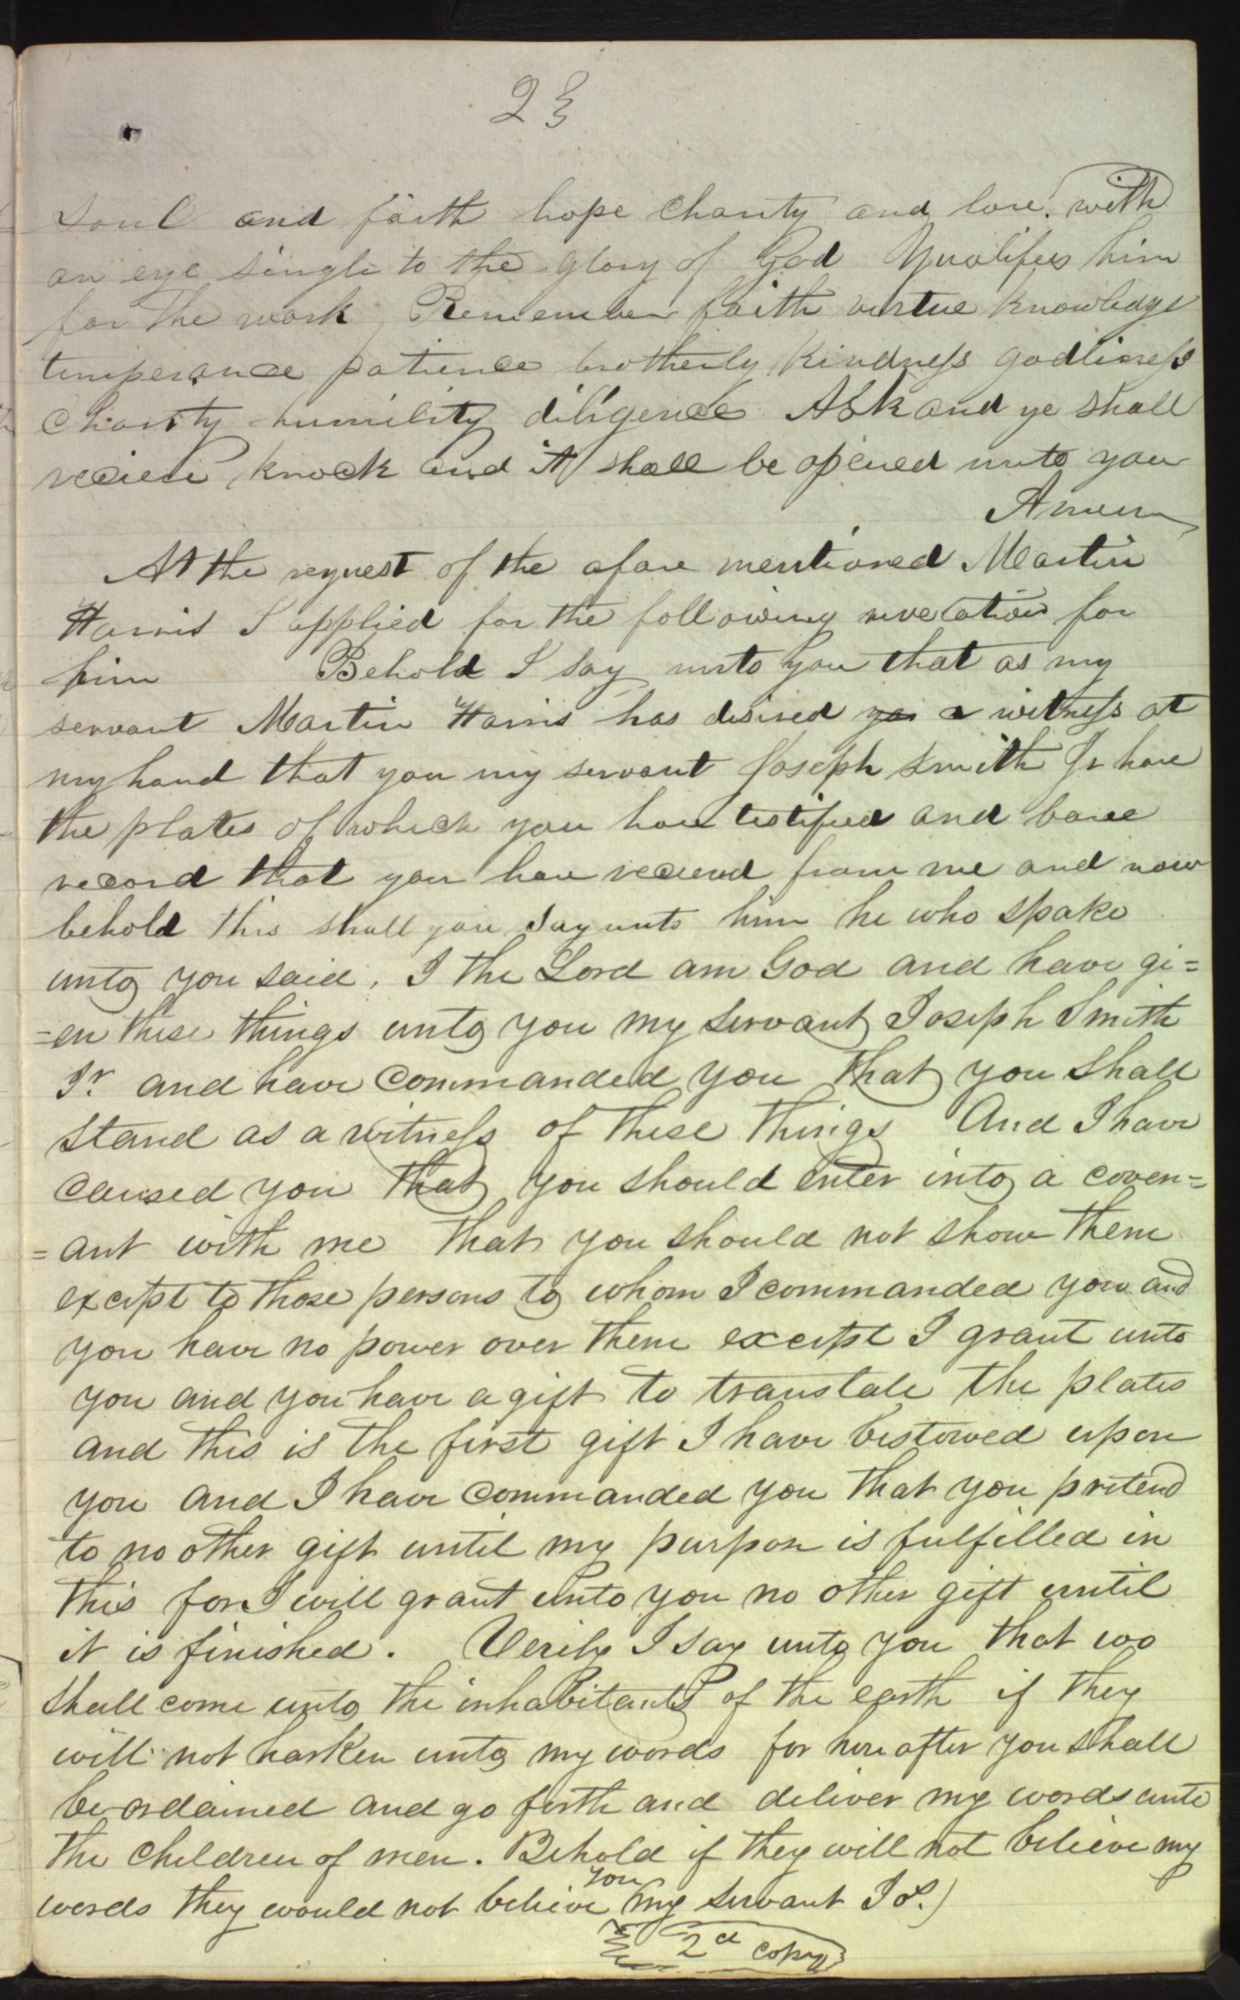 23
soul and faith hope charity and love. with
an eye single to the glory of God Qualifies him
for the work, Remember faith virtue knowledge
temperance patience brotherly kindness godliness
charity humility diligence Ask and ye shall
recieve knock and it shall be opened unto you
Amen
At the request of the afore mentioned Martin
Harris I applied for the following revelation for
him Behold I say unto you that as my
servant Martin Harris has desired a witness at
my hand that you my servant Joseph Smith Jr have
the plates of which you have testified and bare
record that you have recieved from me and now
behold this shall you say unto him he who spake
unto you said, I the Lord am God and have gi=
=en these things unto you my servant Joseph Smith
Jr. and have commanded you that you shall
stand as a witness of these things And I have
caused you that you should enter into a coven=
=ant with me that you should not show them
except to those persons to whom I commanded you and
you have no power over them except I grant unto
you and you have a gift to translate the plates
and this is the first gift I have bestowed upon
you and I have commanded you that you pretend
to no other gift until my purpose is fulfilled in
this for I will grant unto you no other gift until
it is finished. Verily I say unto you that wo
shall come unto the inhabitants of the earth if they
will not harken unto my words for hereafter you shall
be ordained and go forth and deliver my words unto
the children of men. Behold if they will not believe my
words they would not believe you my servant J S.)
2d copy